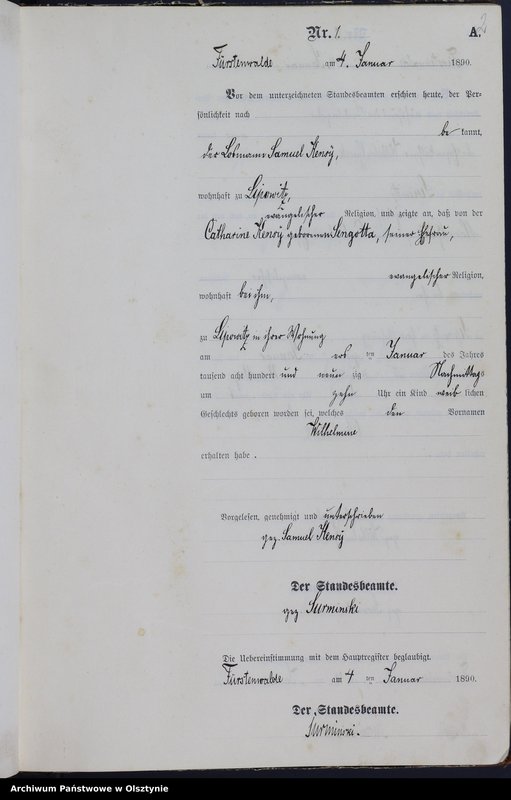 Nr. 1. A. 2
Fürstenwalde am 4. Januar 1890.
Vor dem unterzeichneten Standesbeamten erschien heute, der Per-
sönlichkeit nach
be kannt,
der Losmann Samuel Kensy,
wohnhaft zu Lipowitz,
evangelischer Religion, und zeigte an, daß von der
Catharine Kensy geborenen Sengotta, seiner Ehefrau,
evangelischer Religion,
wohnhaft bei ihm,
zu Lipowitz in ihrer Wohnung
am ten Januar des Jahres
tausend acht hundert und neun zig Nachmittags
um zehn Uhr ein Kind weib lichen
Geschlechts geboren worden sei, welches den Vornamen
Wilhelmine
erhalten habe.
Vorgelesen, genehmigt und unterschrieben
gez. Samuel Kensy
Der Standesbeamte.
gez Surminski
Die Uebereinstimmung mit dem Hauptregister beglaubigt.
Fürstenwalde am 4 ten Januar 1890.
Der Standesbeamte.
Surminski.
Archiwum Państwowe w Olsztynie